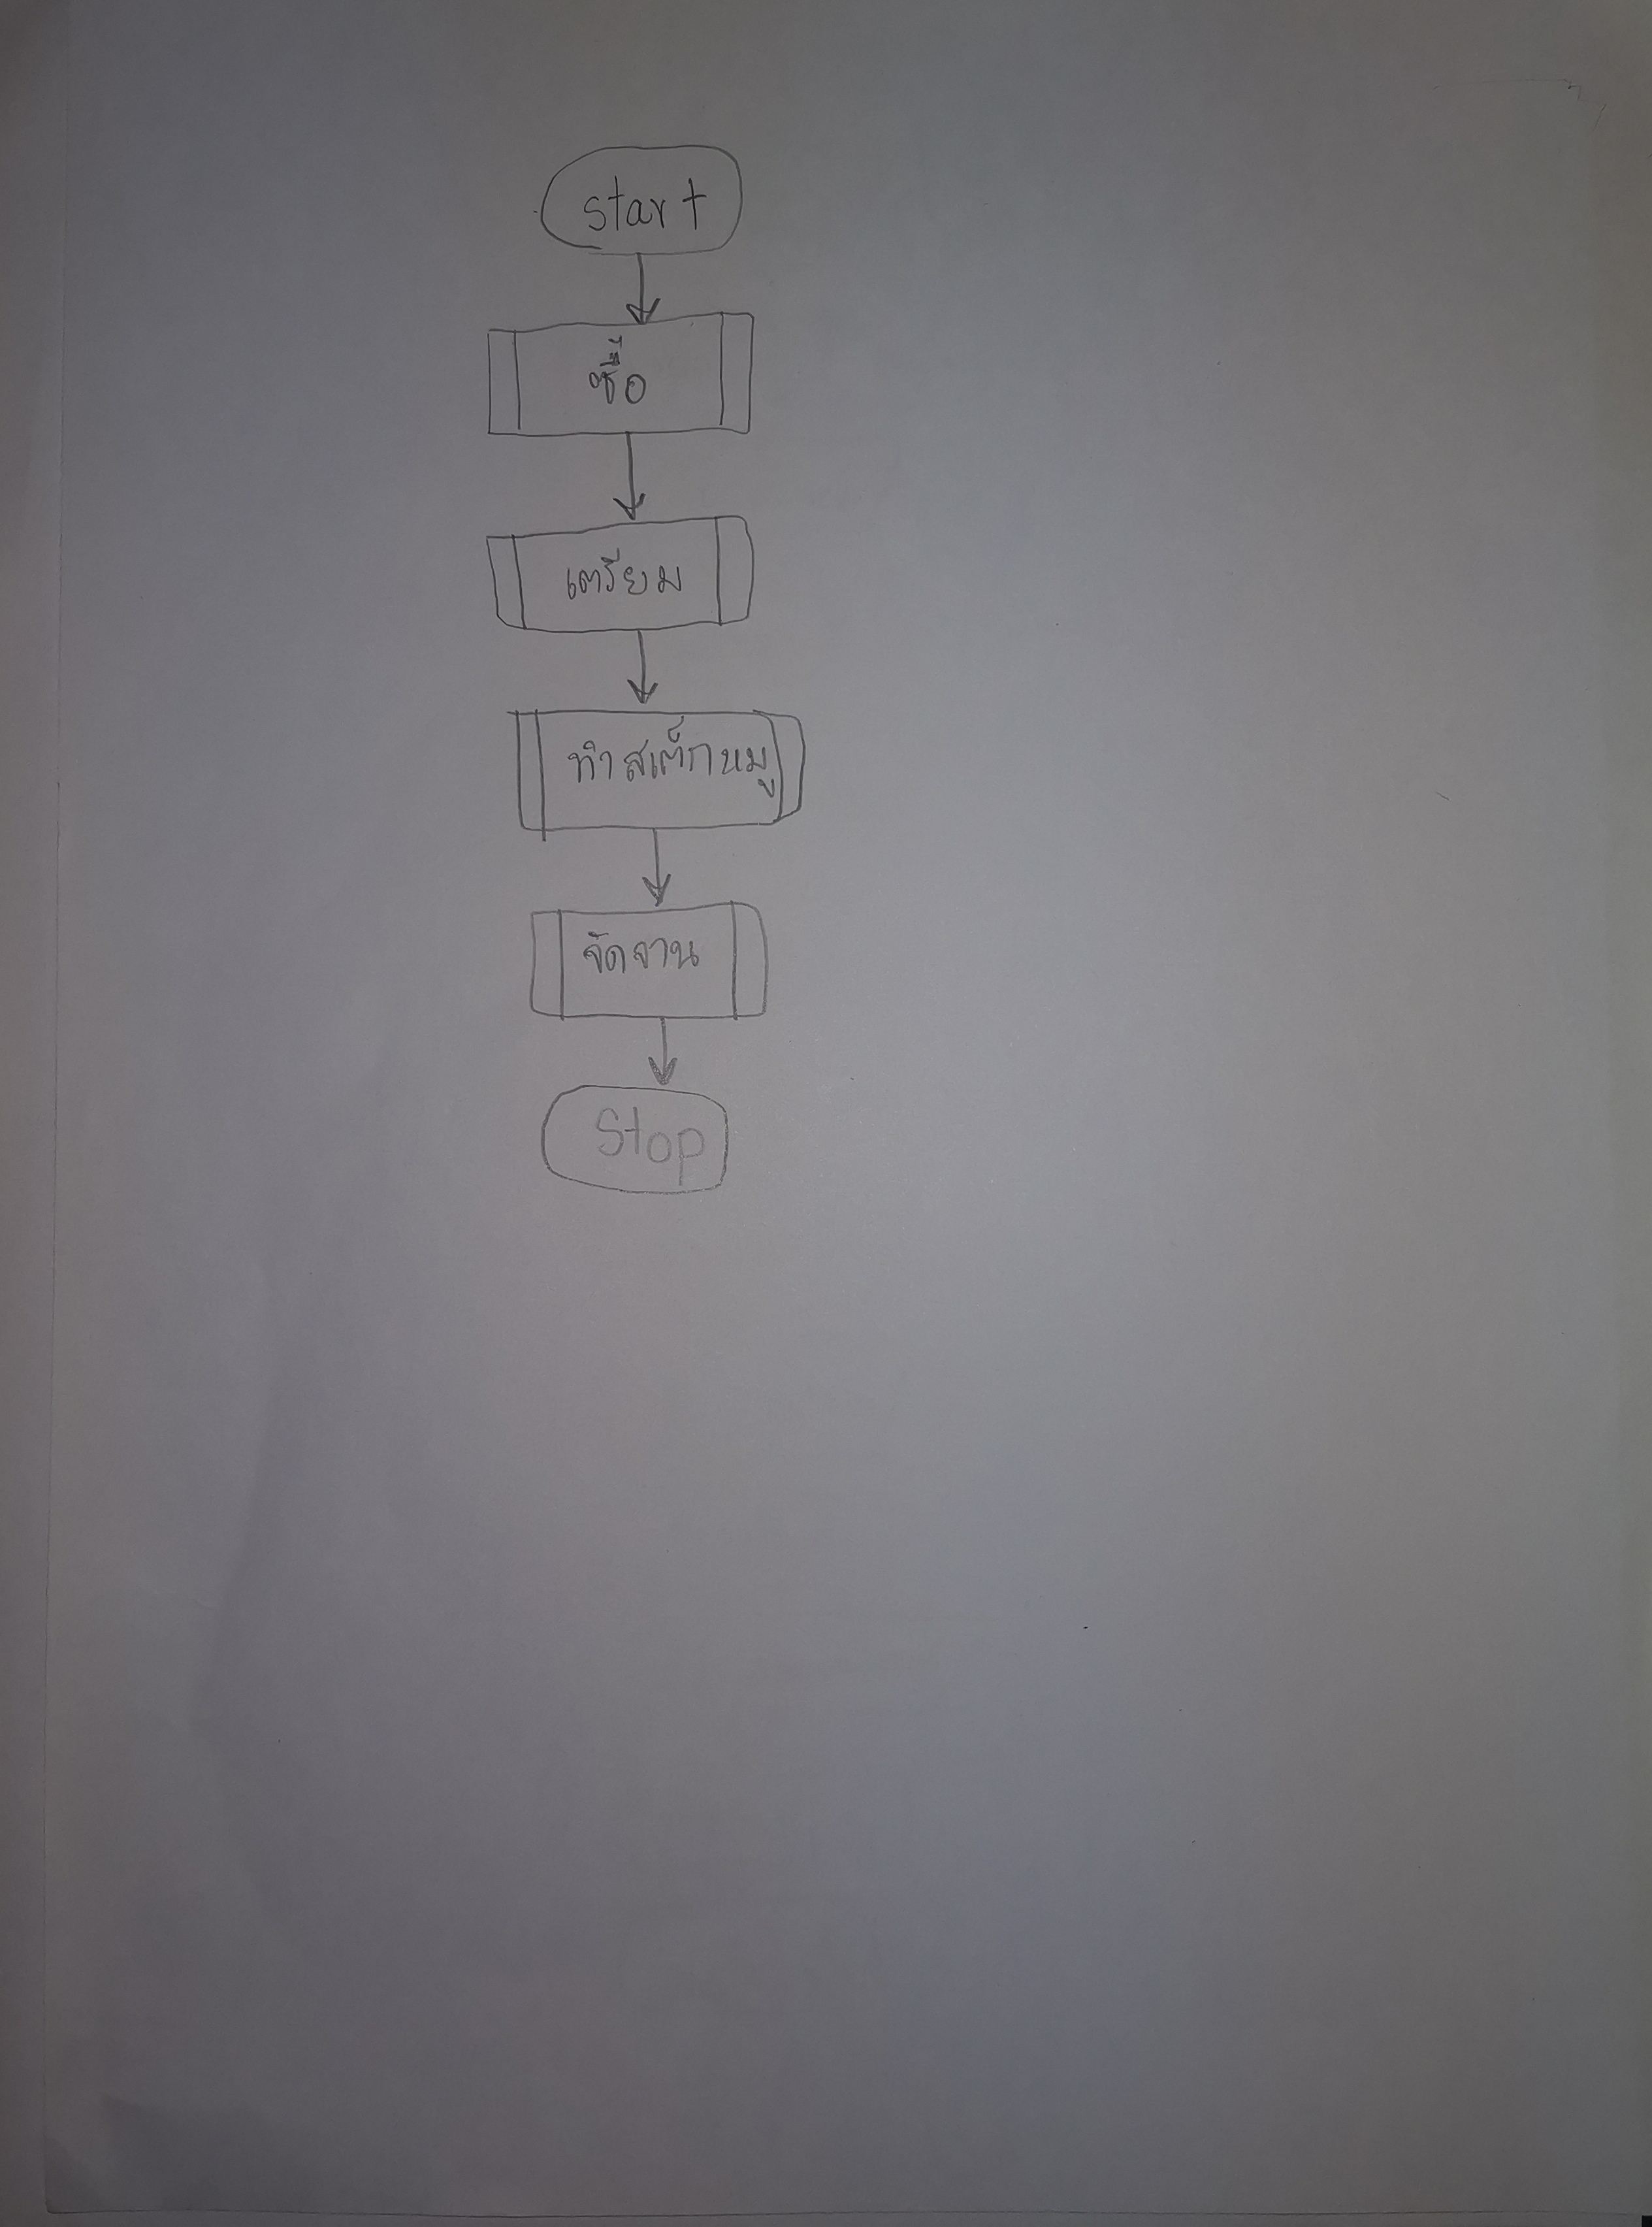 start
ซื้อ
เตรียม
ทำสเต็กหมู
จัดจาน
Stop